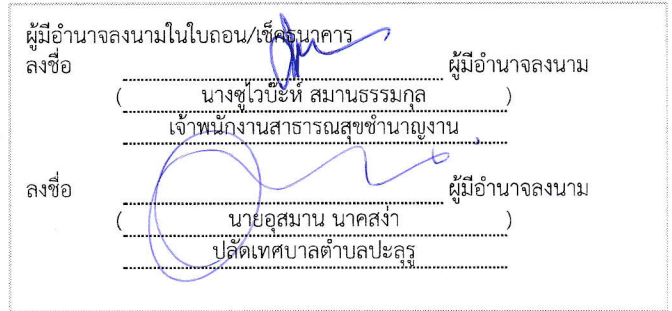 ผู้มีอำนาจลงนามในใบถอน/เช็คธนาคาร
ลงชื่อ ผู้มีอำนาจลงนาม
( นางซูไวบ๊ะห์ สมานธรรมกุล )
เจ้าพนักงานสาธารณสุขชำนาญงาน
ลงชื่อ ผู้มีอำนาจลงนาม
( นายอุสมาน นาคสง่า )
ปลัดเทศบาลตำบลปะลุรู